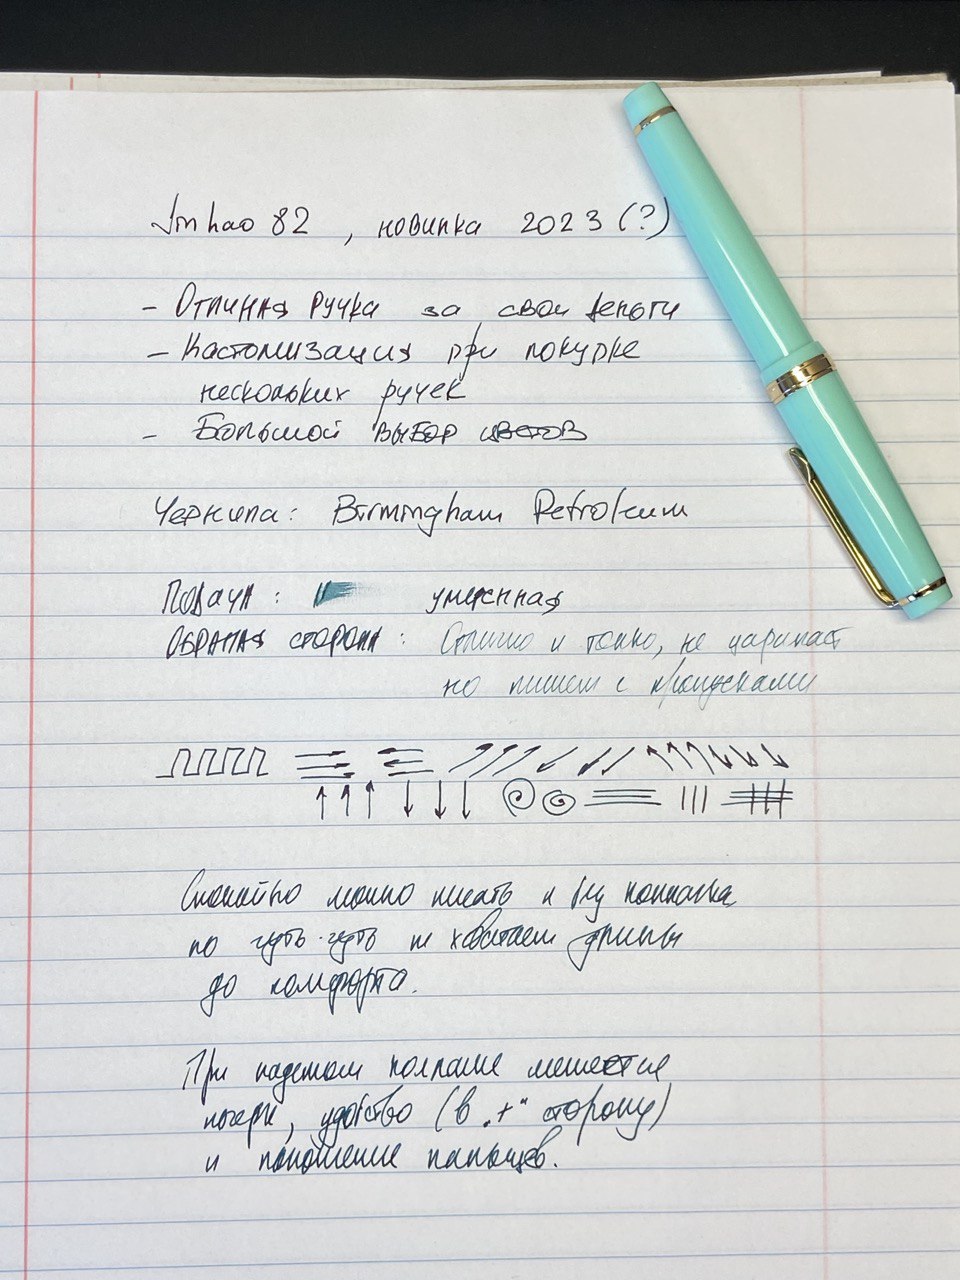 Jinhao 82, новинка 2023 (?)
- Отличная ручка за свои деньги
- Кастомизация при покупке
нескольких ручек
- Большой выбор цветов
Чернила: Birmingham Petroleum
Подача: умеренная
Обратная сторона: Отлично и тонко, не царапает
но пишет с пропусками
Спокойно можно писать и без колпачка
но чуть-чуть не хватает длины
до комфорта.
При надетом колпаке меняется
почерк, удобство (в "+" сторону)
и положение пальцев.